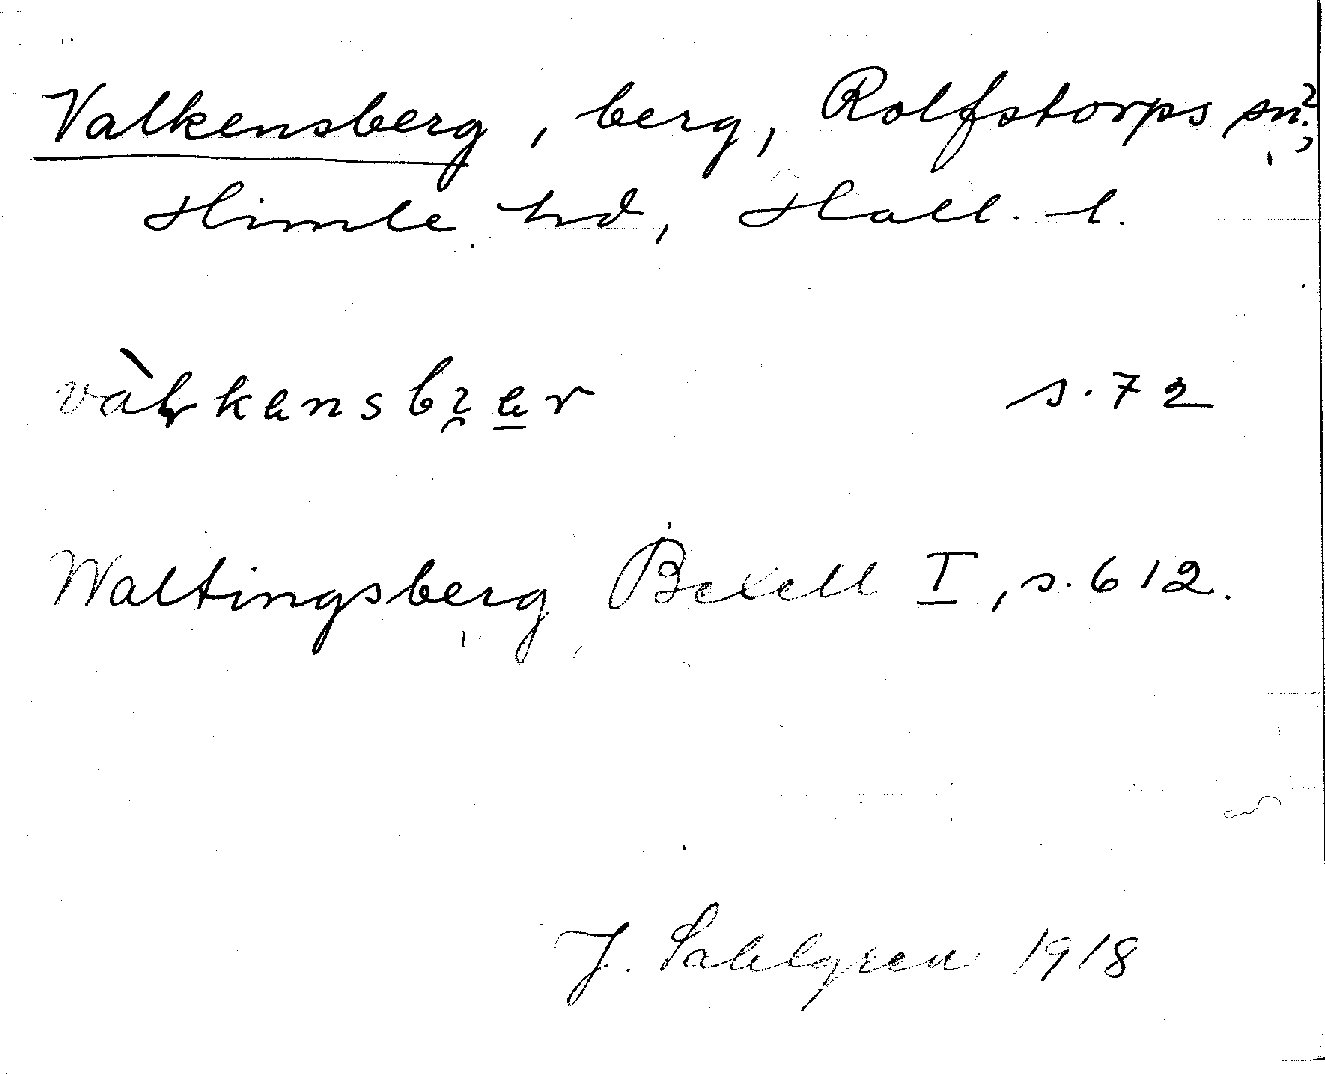 Valkensberg, berg, Rolfstorps sn?,
Himle hd, Hall. l.
vàlkensbɛr s.72
Waltingsberg Bexell I, s. 612.
J. Sahlgren 1918